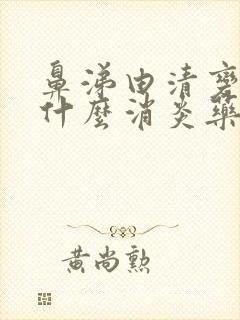 鼻涕由清变
什麼消炎藥
黄尚勲